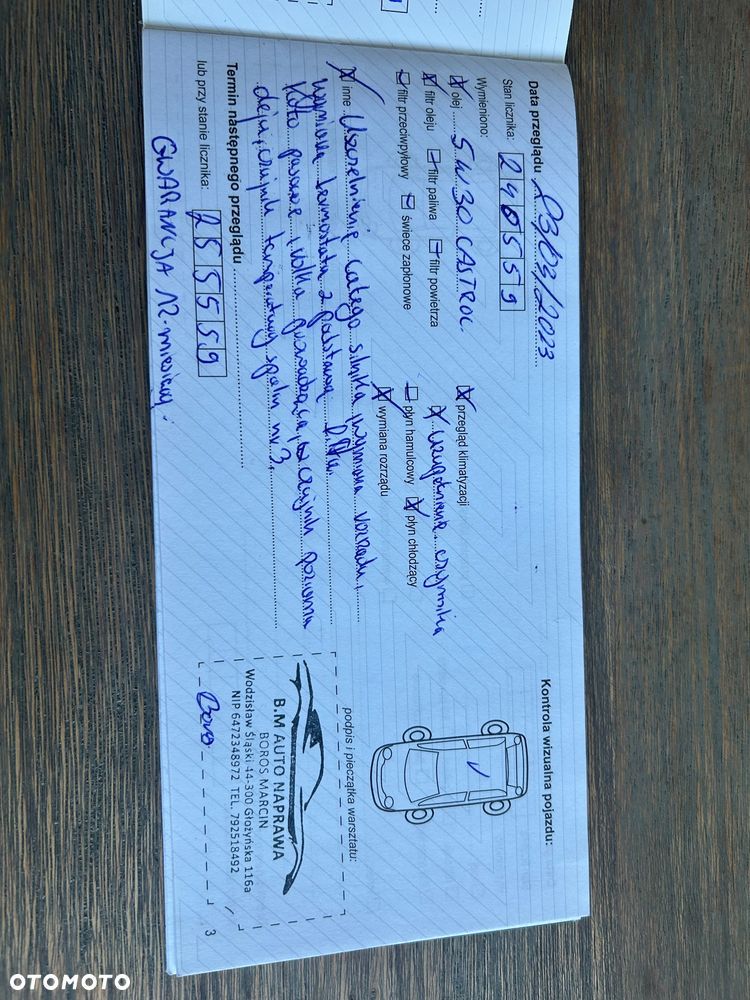 Data przeglądu 03/03/2023
Stan licznika: 240559
Wymieniono:
olej 5W30 CASTROL
filtr oleju filtr paliwa filtr powietrza
filtr przeciwpyłowy świece zapłonowe
przegląd klimatyzacji
uzupełnienie czynnika
płyn hamulcowy płyn chłodzący
wymiana rozrządu
inne: Uszczelnienie całego silnika, wymiana
wymiana termostatu z podstawą
koło pasowe i rolka prowadząca, czujnik poziomu
oleju, czujnik temperatury spalin nr 3,
Termin następnego przeglądu
lub przy stanie licznika: 255559
GWARANCJA 12-miesięcy.
Kontrola wizualna pojazdu:
podpis i pieczątka warsztatu:
B.M AUTO NAPRAWA
BOROS MARCIN
Wodzisław Śląski 44-300 Głożyńska 116a
NIP 6472348972 TEL. 792518492
3
OTOMOTO